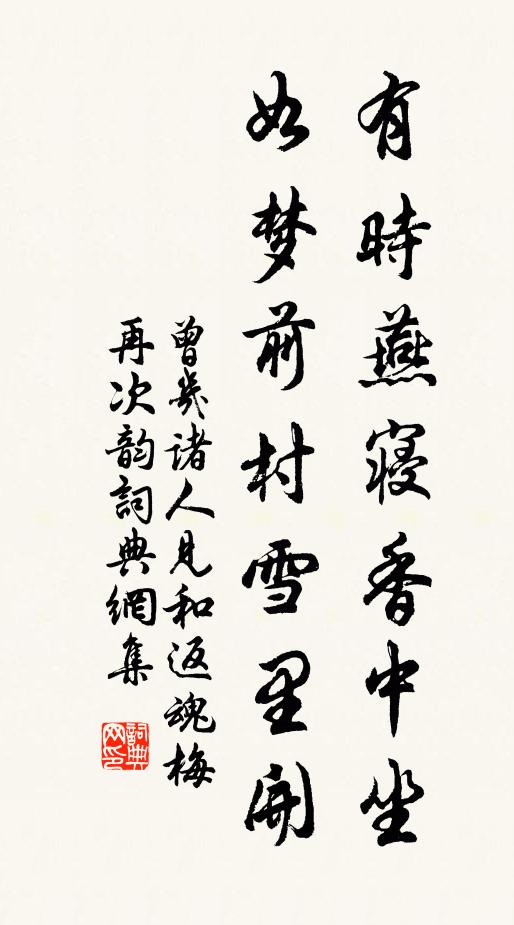 有時燕寝香中坐
如梦前村雪里開
曾幾诸人見和返魂梅
再次韵詞典網集
詞典网印